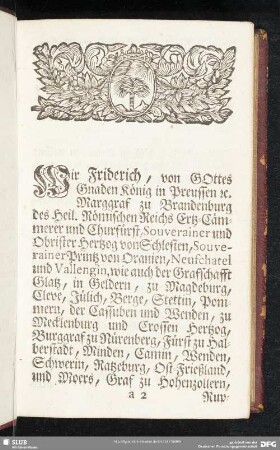 Wir Friderich, von GOttes
Gnaden König in Preussen ꝛc.
Marggraf zu Brandenburg
des Heil. Römischen Reichs Ertz-Cäm-
merer und Churfürst, Souverainer und
Obrister Hertzog von Schlesien, Souve-
rainer Printz von Oranien, Neufchatel
und Vallengin, wie auch der Grafschafft
Glatz, in Geldern, zu Magdeburg,
Cleve, Jülich, Berge, Stettin, Pom-
mern, der Cassuben und Wenden, zu
Mecklenburg und Crossen Hertzog,
Burggraf zu Nürenberg, Fürst zu Hal-
berstadt, Minden, Camin, Wenden,
Schwerin, Ratzeburg, Ost-Frießland,
und Moers, Graf zu Hohenzollern,
a 2 Rup-
SLUB
DFG